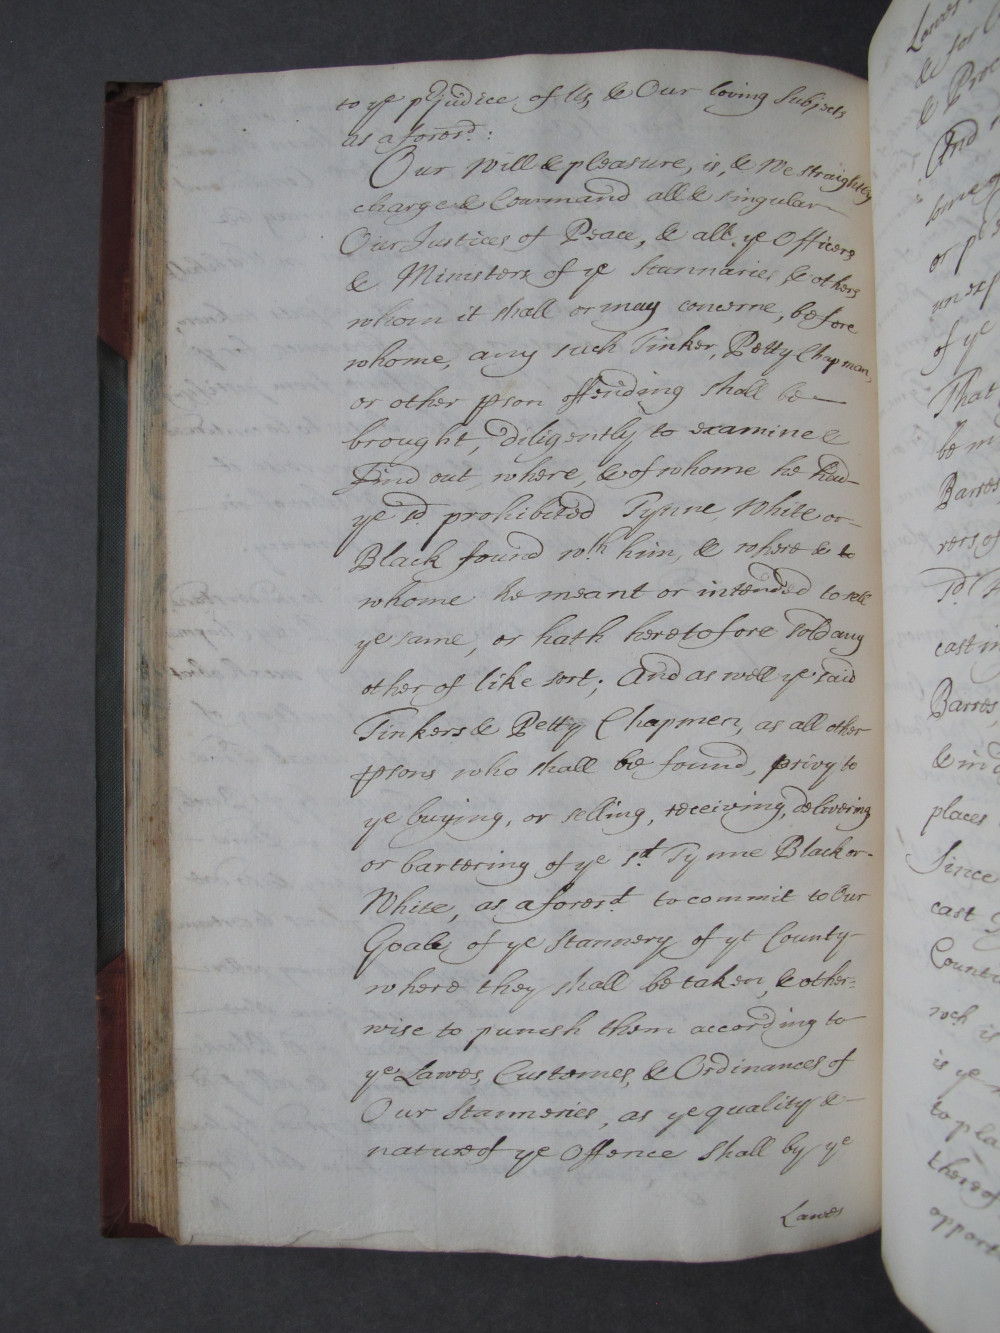 to ye prjudice of Us & Our loving Subjects
as aforesd:
Our Will & pleasure, is, & We straightly
charge & Command all & singular
Our Justices of Peace, & all ye Officers
& Ministers of ye Stannaries, & others
whom it shall or may concerne, before
whome, any such Tinker, Petty Chapman,
or other pson offending shall be
brought, diligently to examine &
Find out, where, & of whome he had
ye sd. prohibited Tynne, White or
Black found wth him, & where & to
whome he meant or intended to sell
ye same, or hath heretofore sold any
other of like sort; And as well ye said
Tinkers & Petty Chapmen, as all other
psons who shall be found, privy to
ye buying, or selling, receiving, delivering
or bartering of ye sd. Tynne Black or
White, as aforesd. to commit to Our
Goale of ye Stannery of yt County
where they shall be taken, & other=
wise to punish them according to
ye Lawes, Customes, & Ordinances of
Our Stanneries, as ye quality &
nature of ye Offence shall by ye
Lawes
And
or
unexp
of ye
That
be m
Barres
rers of
sd. T
cast in
Barres
places
Since
cast
Count
wch is
is ye
to pla
thereof
opport